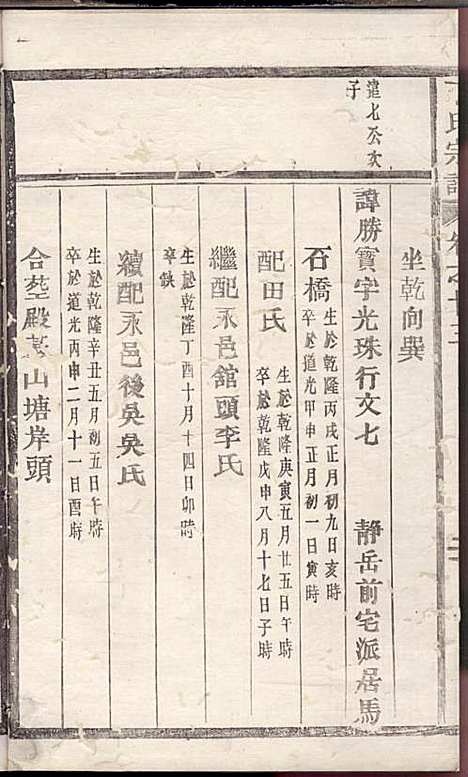 氏宗譜
坐乾向巽
遣七公次
子
諱勝寳字光珠行文七 靜岳前宅派居馬
石橋
生於乾隆丙戌正月初九日亥時
卒於道光甲申正月初一日寅時
配田氏
生於乾隆庚寅五月廿五日午時
卒於乾隆戊申八月十七日子時
繼配永邑舘頭李氏
生於乾隆丁酉十月十四日卯時
卒缺
續配永邑後吳吳氏
生於乾隆辛丑五月初五日午時
卒於道光丙申二月十一日酉時
合塟殿基山塘岸頭